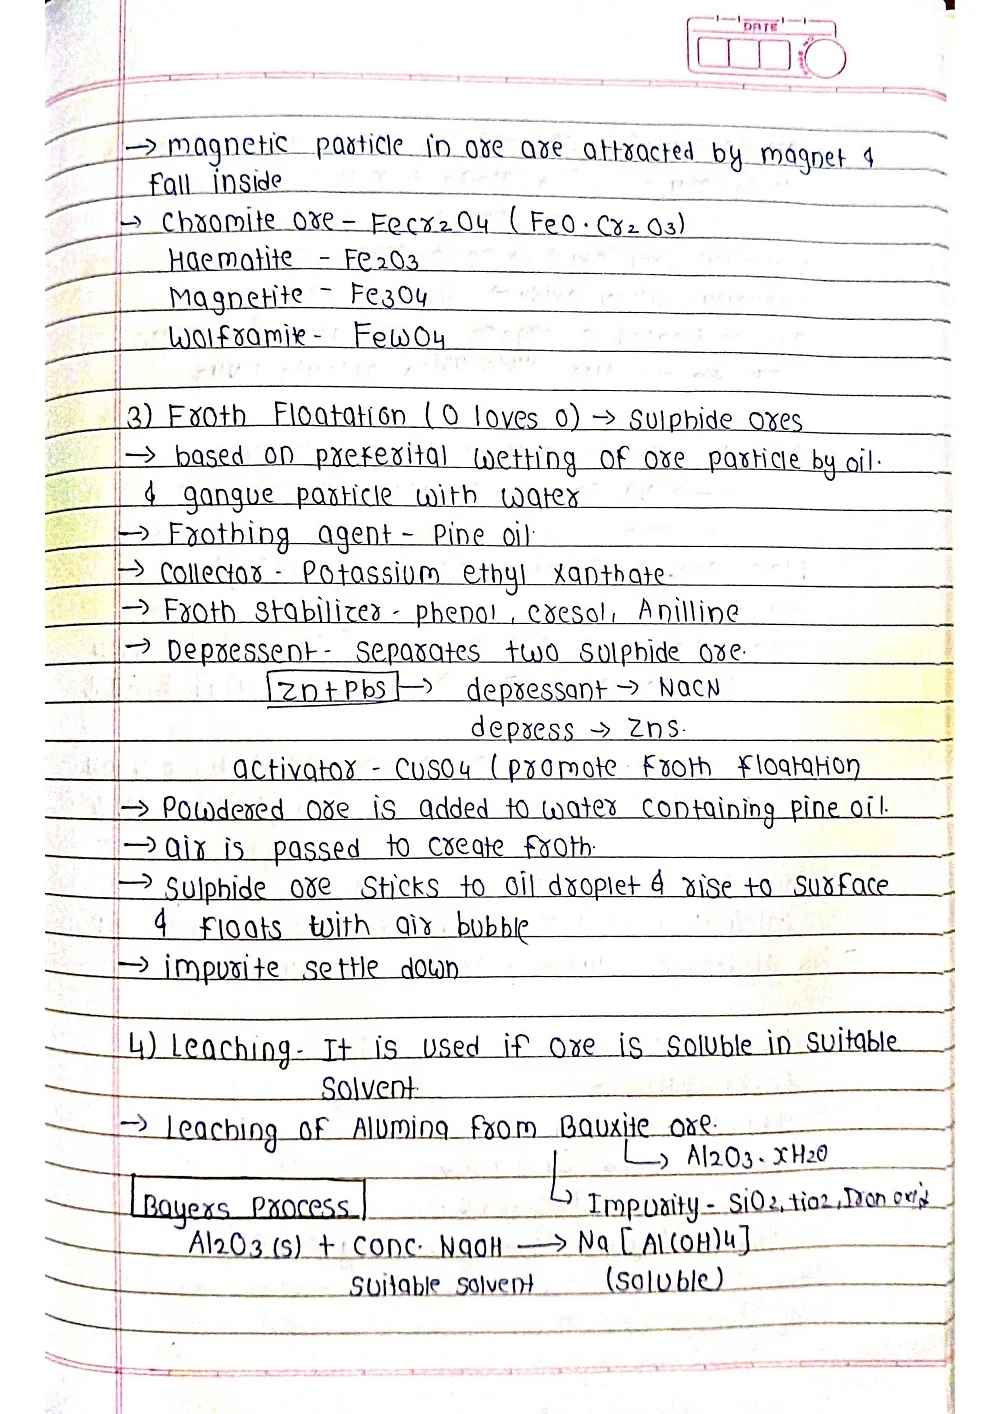 DATE
→ magnetic particle in ore are attracted by magnet &
fall inside
↳ Chromite ore - FeCr2O4 (FeO · Cr2O3)
Haematite - Fe2O3
Magnetite - Fe3O4
Wolframite - FeWO4
3) Froth Floatation (O loves O) → Sulphide ores
→ based on preferital wetting of ore particle by oil.
& gangue particle with water
→ Frothing agent - Pine oil
→ Collector - Potassium ethyl xanthate.
→ Froth Stabilizer - phenol, cresol, Anilline
→ Depressent - Separates two sulphide ore.
Zn + PbS → depressant → NaCN
depress → ZnS.
activator - CuSO4 (promote froth floatation
→ Powdered ore is added to water containing pine oil.
→ air is passed to create froth.
→ Sulphide ore sticks to oil droplet & rise to surface
& floats with air bubble
→ impurite settle down
4) Leaching - It is used if ore is soluble in suitable
solvent.
→ Leaching of Alumina from Bauxite ore.
↳ Al2O3 · xH2O
Bayers Process ↳ Impurity - SiO2, TiO2, Iron oxid
Al2O3 (s) + Conc. NaOH → Na [Al(OH)4]
suitable solvent (soluble)